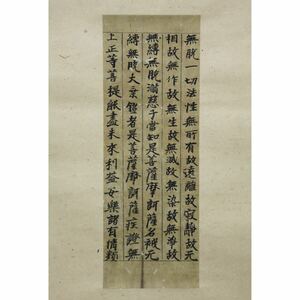 無脫一切法性無所有故遠離故寂靜故无
相故無作故無生故無滅故無染故無淨故
無縛無脫滿慈子當知是菩薩摩訶薩名被无
縛無脫大乘鎧者是菩薩摩訶薩疾證無
上正等菩提能盡未來利益安樂諸有情類